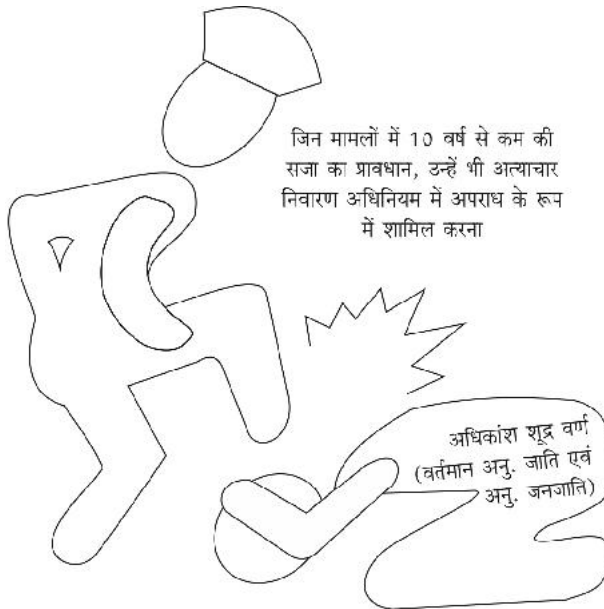 जिन मामलों में 10 वर्ष से कम की
सजा का प्रावधान, उन्हें भी अत्याचार
निवारण अधिनियम में अपराध के रूप
में शामिल करना
अधिकांश शूद्र वर्ण
(वर्तमान अनु. जाति एवं
अनु. जनजाति)